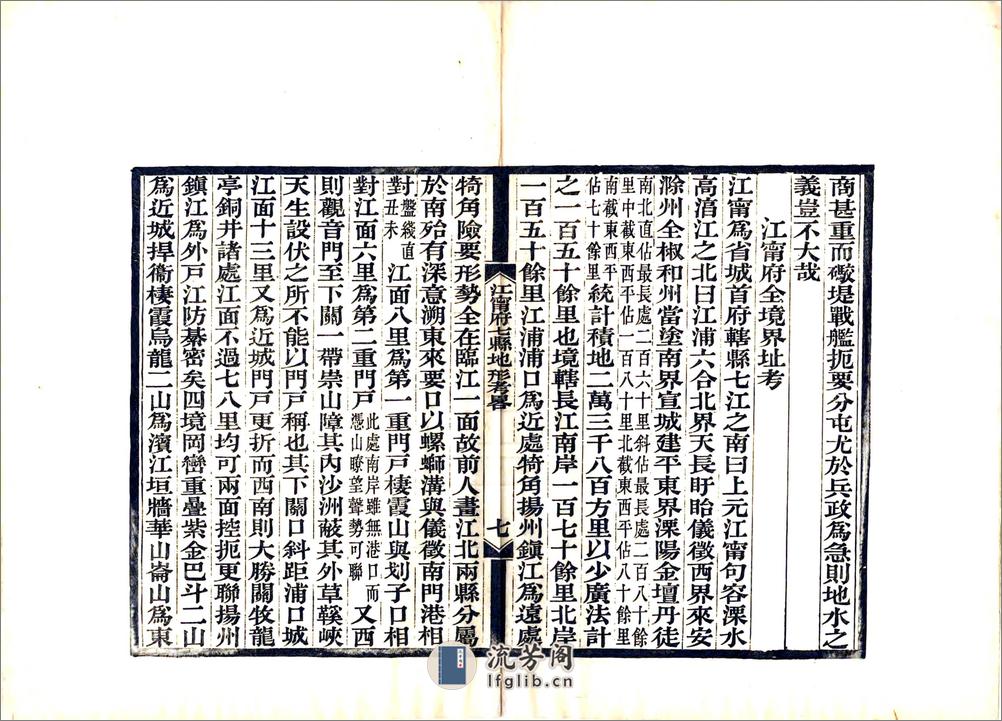 商甚重而礮堤戰艦扼要分屯尤於兵政爲急則地水之
義豈不大哉
江甯府全境界址考
江甯爲省城首府轄縣七江之南曰上元江甯句容溧水
高淯江之北曰江浦六合北界天長盱眙儀徵西界來安
滁州全椒和州當塗南界宣城建平東界溧陽金壇丹徒
南北直佔最長處二百六十里斜佔最長處二百八十餘
里中截東西平佔一百八十里北截東西平佔八十餘里
南截東西平
佔七十餘里
統計積地二萬三千八百方里以少廣法計
之一百五十餘里也境轄長江南岸一百七十餘里北岸
一百五十餘里江浦浦口爲近處犄角揚州鎭江爲遠處
江甯府七縣地形考畧
七
犄角險要形勢全在臨江一面故前人畫江北兩縣分屬
於南殆有深意溯東來要口以螺螄溝與儀徵南門港相
對
盤綫直
丑未
江面八里爲第一重門戸棲霞山與划子口相
對江面六里爲第二重門戸
此處南岸雖無港口而
憑山瞭望聲勢可聯
又西
則觀音門至下關一帶崇山障其內沙洲蔽其外草鞵峽
天生設伏之所不能以門戸稱也其下關口斜距浦口城
江面十三里又爲近城門戸更折而西南則大勝關牧龍
亭銅井諸處江面不過七八里均可兩面控扼更聯揚州
鎭江爲外戸江防綦密矣四境岡巒重疊紫金巴斗二山
爲近城捍衞棲霞烏龍二山爲濱江垣牆華山崙山爲東
流芳阁
lfglib.cn